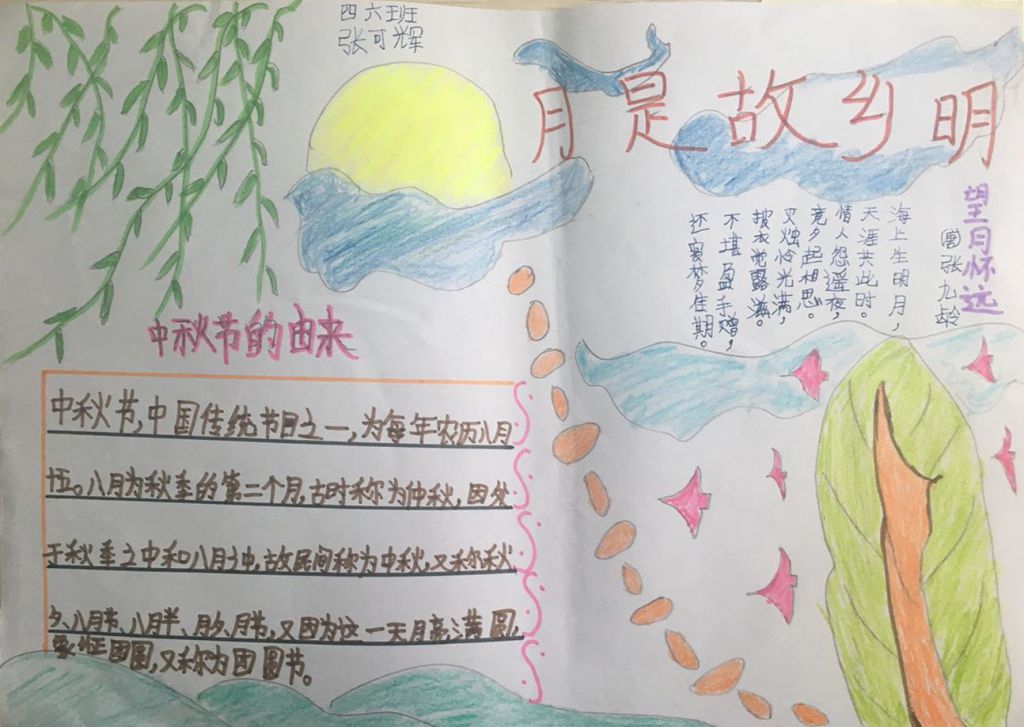 四六班
张可辉
月是故乡明
望月怀远
唐 张九龄
海上生明月，
天涯共此时。
情人怨遥夜，
竟夕起相思。
灭烛怜光满，
披衣觉露滋。
不堪盈手赠，
还寝梦佳期。
中秋节的由来
中秋节，中国传统节目之一，为每年农历八月
十五。八月为秋季的第二个月，古时称为仲秋，因处
于秋季之中和八月之中，故民间称为中秋，又称秋
夕、八月节、八月半、月夕、月节，又因为这一天月亮满圆，
象征团圆，又称为团圆节。